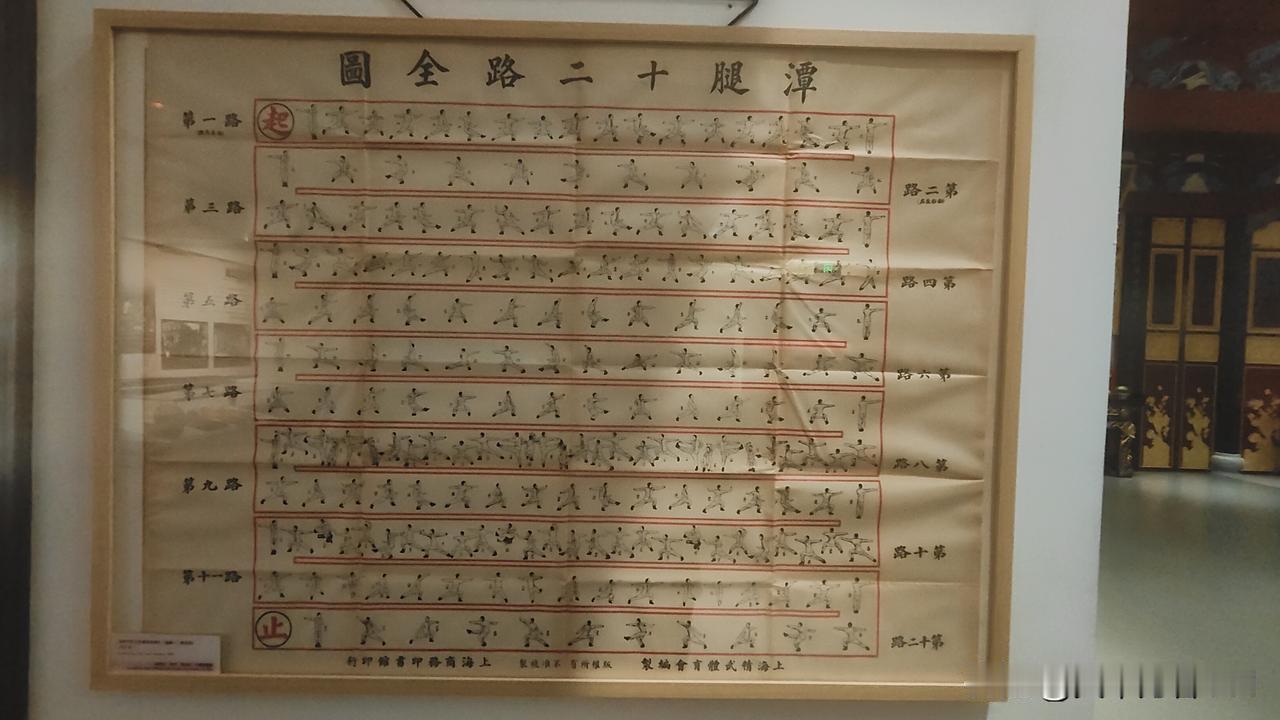 潭腿十二路全圖
第一路
起
第二路
第三路
第四路
第五路
第六路
第七路
第八路
第九路
第十路
第十一路
第十二路
止
上海精武體育會編製
版權所有
上海商務印書館印行